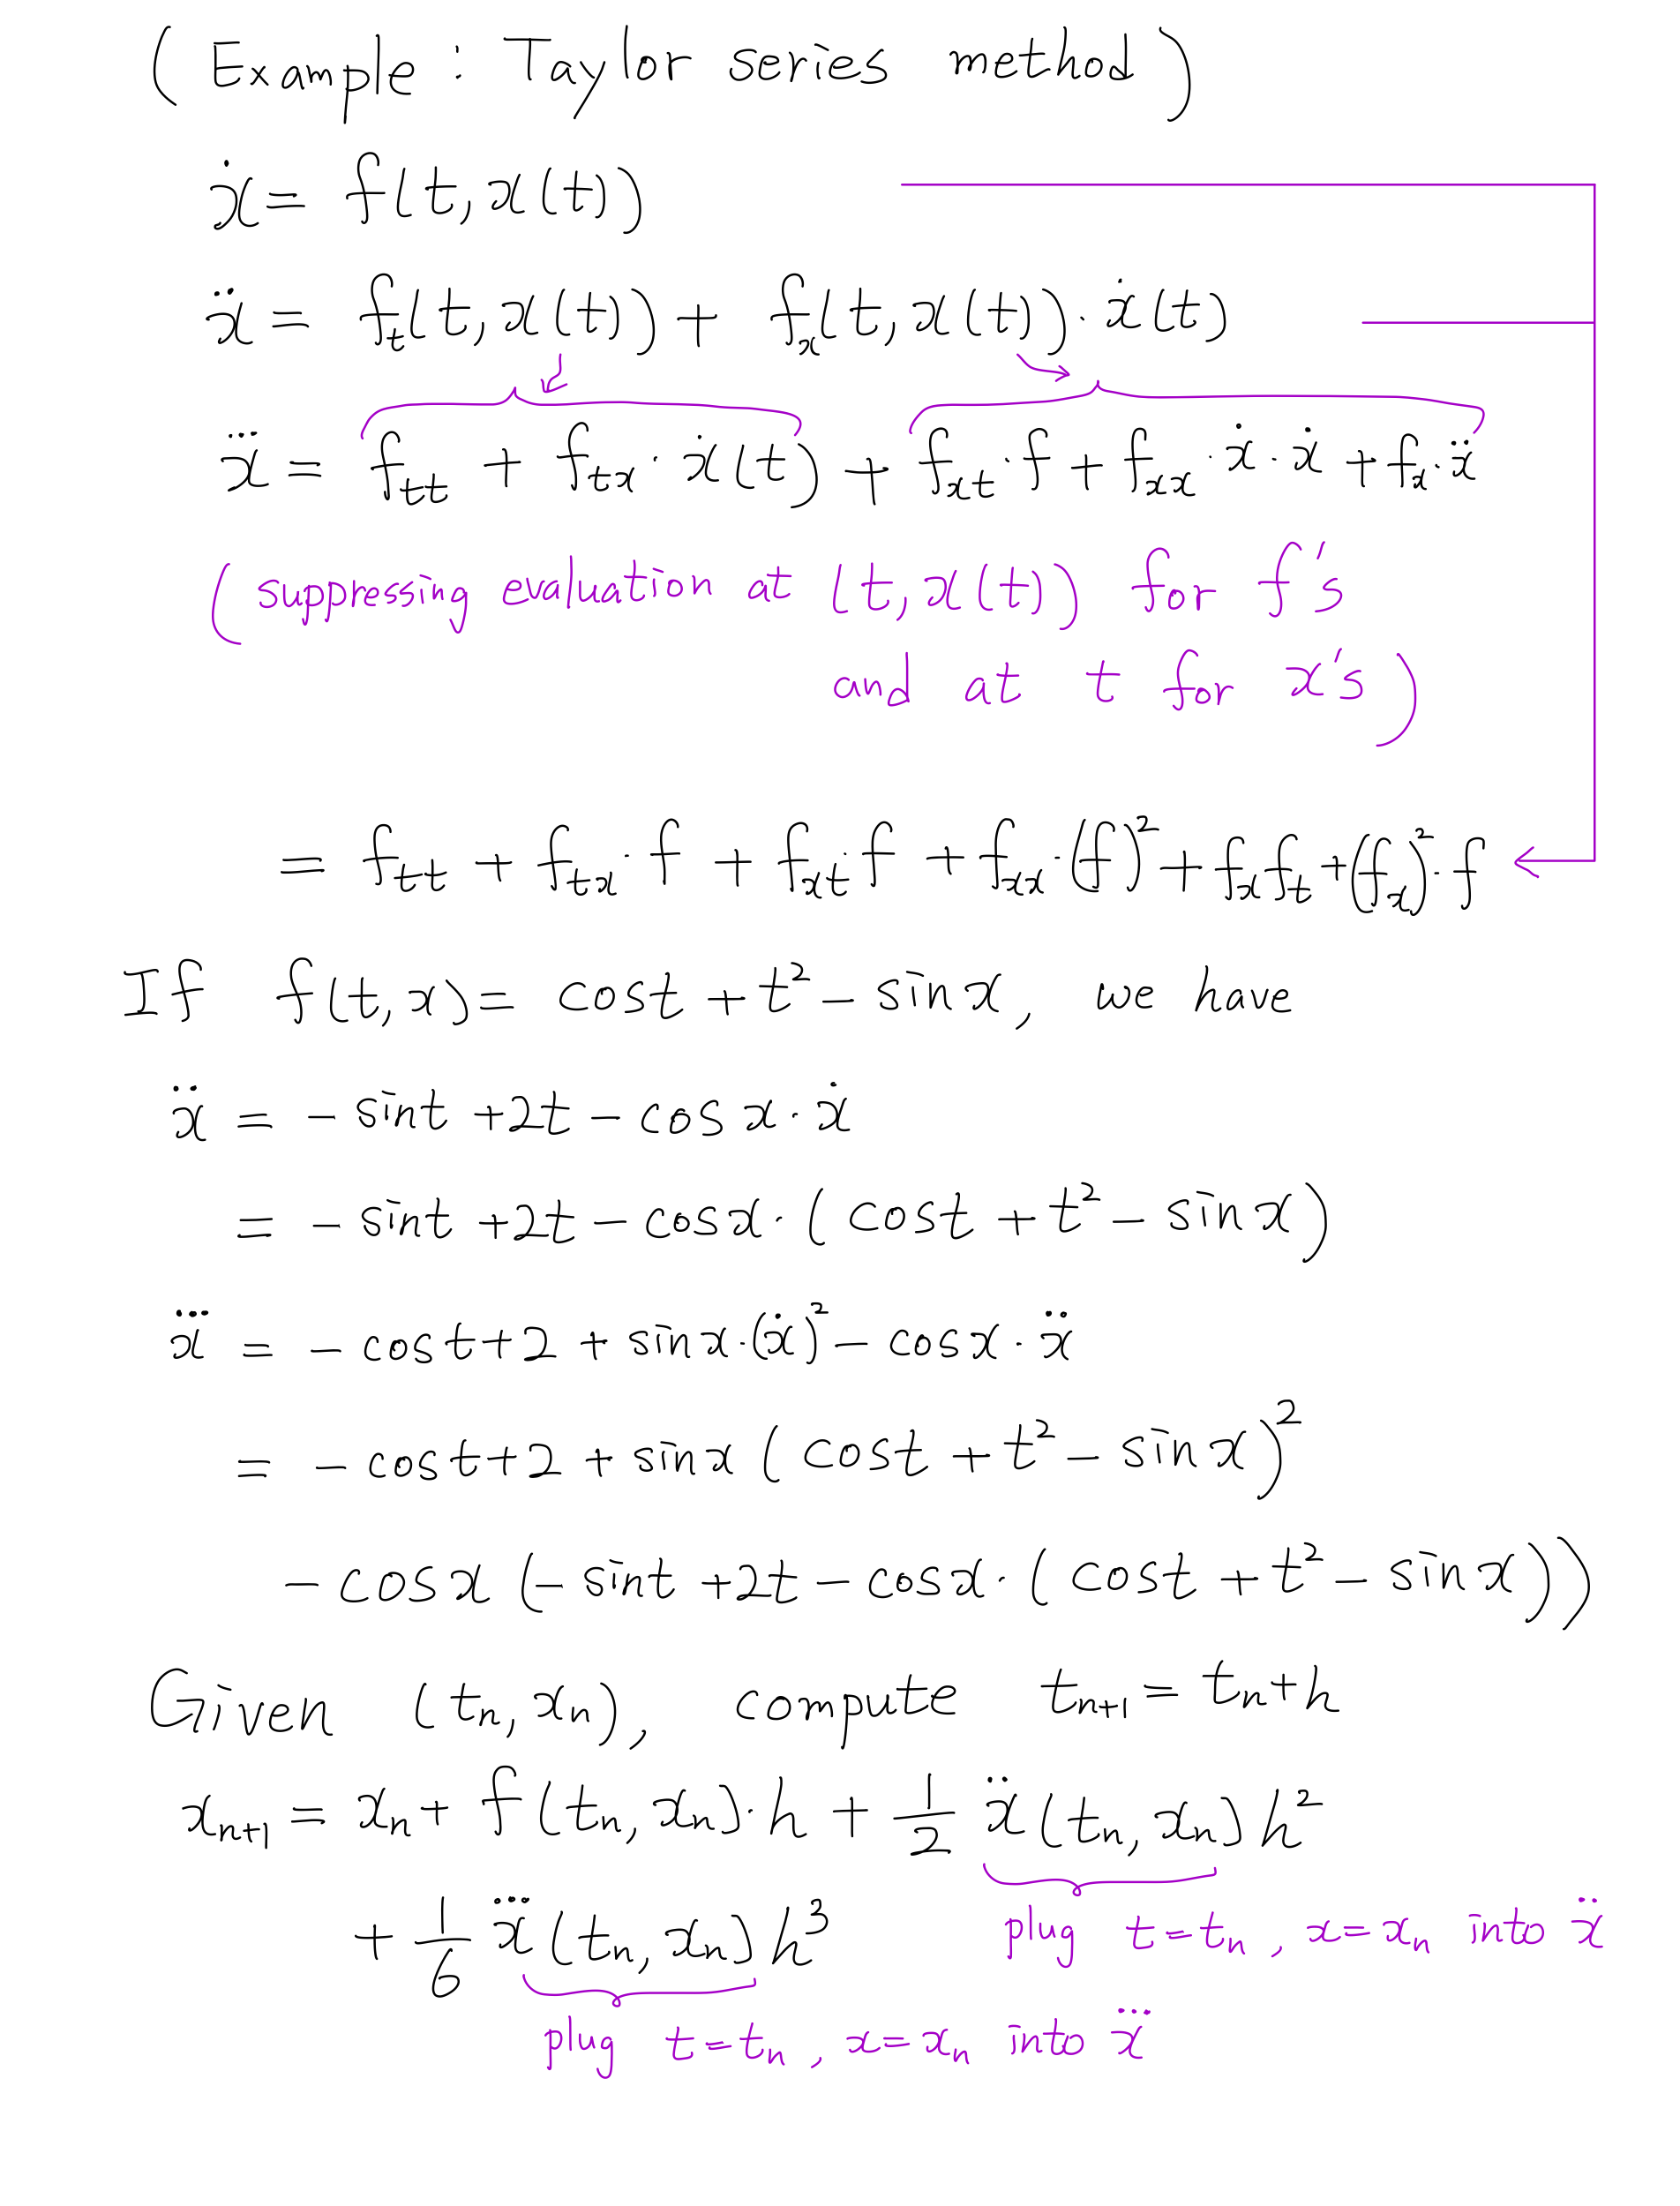 (Example : Taylor series method)
ẋ = f(t, x(t))
ẍ = f_t(t, x(t)) + f_x(t, x(t)) · ẋ(t)
x⃛ = f_tt + f_tx · ẋ(t) + f_xt · f + f_xx · ẋ · ẋ + f_x · ẍ
(suppressing evaluation at (t, x(t)) for f's
and at t for x's)
= f_tt + f_tx · f + f_xt · f + f_xx · (f)² + f_x f_t + (f_x)² · f
If f(t, x) = cost + t² − sinx, we have
ẍ = − sint + 2t − cosx · ẋ
= − sint + 2t − cosx · (cost + t² − sinx)
x⃛ = − cost + 2 + sinx · (ẋ)² − cosx · ẍ
= − cost + 2 + sinx (cost + t² − sinx)²
− cosx (− sint + 2t − cosx · (cost + t² − sinx))
Given (t_n, x_n), compute t_{n+1} = t_n + h
x_{n+1} = x_n + f(t_n, x_n) · h + 1/2 ẍ(t_n, x_n) h²
+ 1/6 x⃛(t_n, x_n) h³
plug t = t_n, x = x_n into ẍ
plug t = t_n, x = x_n into x⃛